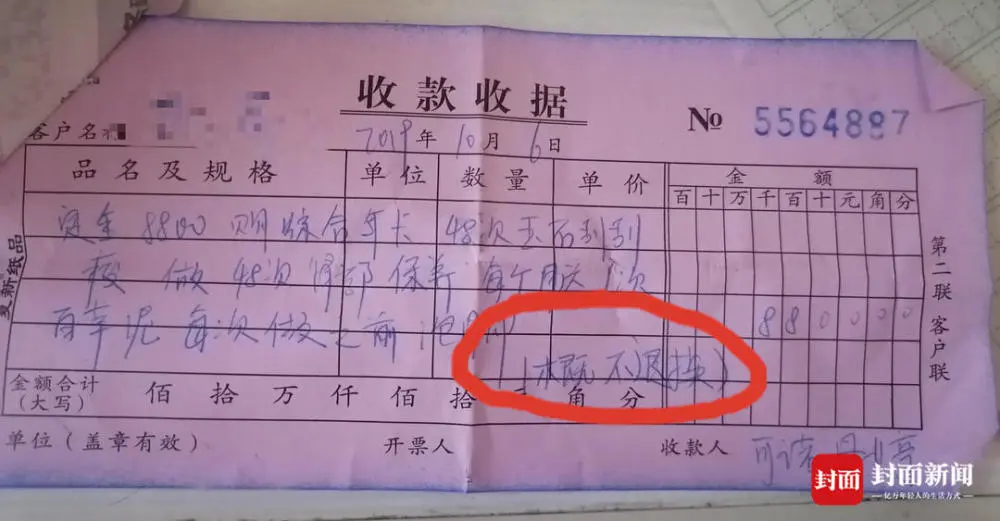 收款收据
№ 5564887
客户名称
2019年10月6日
品名及规格 单位 数量 单价 金额
百 十 万 千 百 十 元 角 分
定金 8800 购综合年卡 48次玉石刮刮
做 48次 肾部保养 每个月送 次
8 8 0 0 0 0
百草泥 每次做之前泡
(概不退换)
金额合计
(大写)
佰 拾 万 仟 佰 拾 角 分
单位(盖章有效) 开票人 收款人
第二联 客户联
复新纸品
封面 封面新闻
亿万年轻人的生活方式